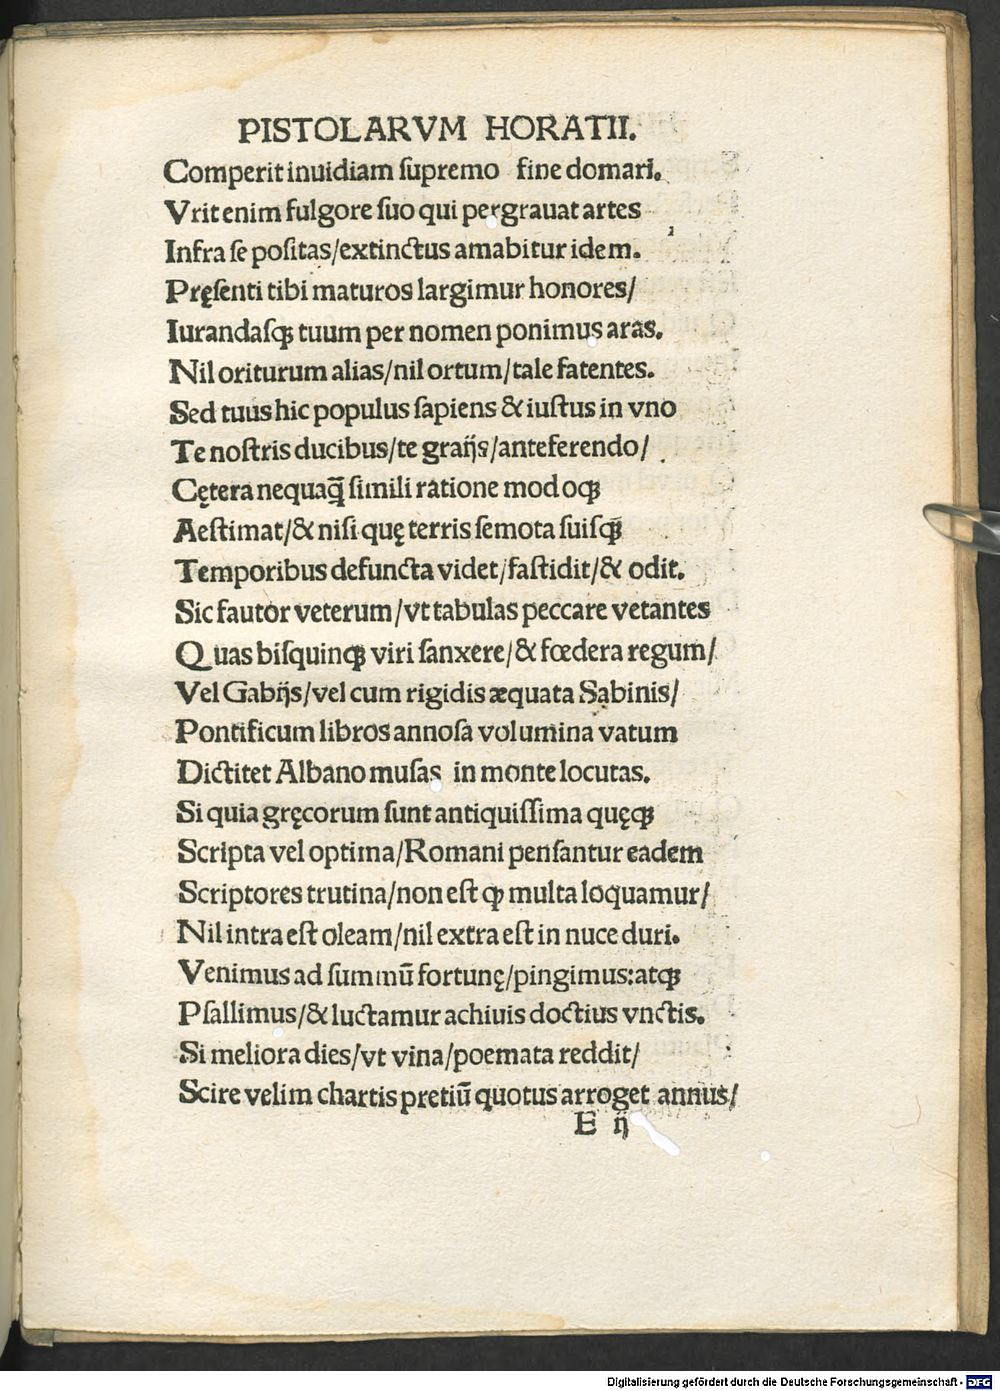 PISTOLARVM HORATII.
Comperit inuidiam ſupremo fine domari.
Vrit enim fulgore ſuo qui pergrauat artes
Infra ſe poſitas/extinctus amabitur idem.
Pręſenti tibi maturos largimur honores/
Iurandaſqꝫ tuum per nomen ponimus aras.
Nil oriturum alias/nil ortum/tale fatentes.
Sed tuus hic populus ſapiens & iuſtus in vno
Te noſtris ducibus/te graijs/anteferendo/
Cętera nequaq̄ ſimili ratione modoqꝫ
Aeſtimat/& niſi quę terris ſemota ſuiſqꝫ
Temporibus defuncta videt/faſtidit/& odit.
Sic fautor veterum/vt tabulas peccare vetantes
Quas biſquinqꝫ viri ſanxere/& fœdera regum/
Vel Gabijs/vel cum rigidis æquata Sabinis/
Pontificum libros annoſa volumina vatum
Dictitet Albano muſas in monte locutas.
Si quia gręcorum ſunt antiquiſſima quęqꝫ
Scripta vel optima/Romani penſantur eadem
Scriptores trutina/non eſt ꝙ multa loquamur/
Nil intra eſt oleam/nil extra eſt in nuce duri.
Venimus ad ſummū fortunę/pingimus:atqꝫ
Pſallimus/& luctamur achiuis doctius vnctis.
Si meliora dies/vt vina/poemata reddit/
Scire velim chartis pretiū quotus arroget annus/
E ij
Digitalisierung gefördert durch die Deutsche Forschungsgemeinschaft - DFG